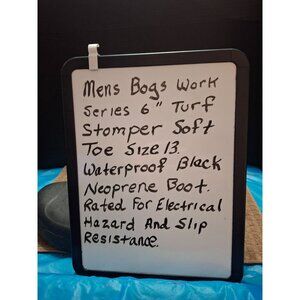 Mens Bogs Work
Series 6" Turf
Stomper Soft
Toe Size 13.
Waterproof Black
Neoprene Boot.
Rated For Electrical
Hazard And Slip
Resistance.